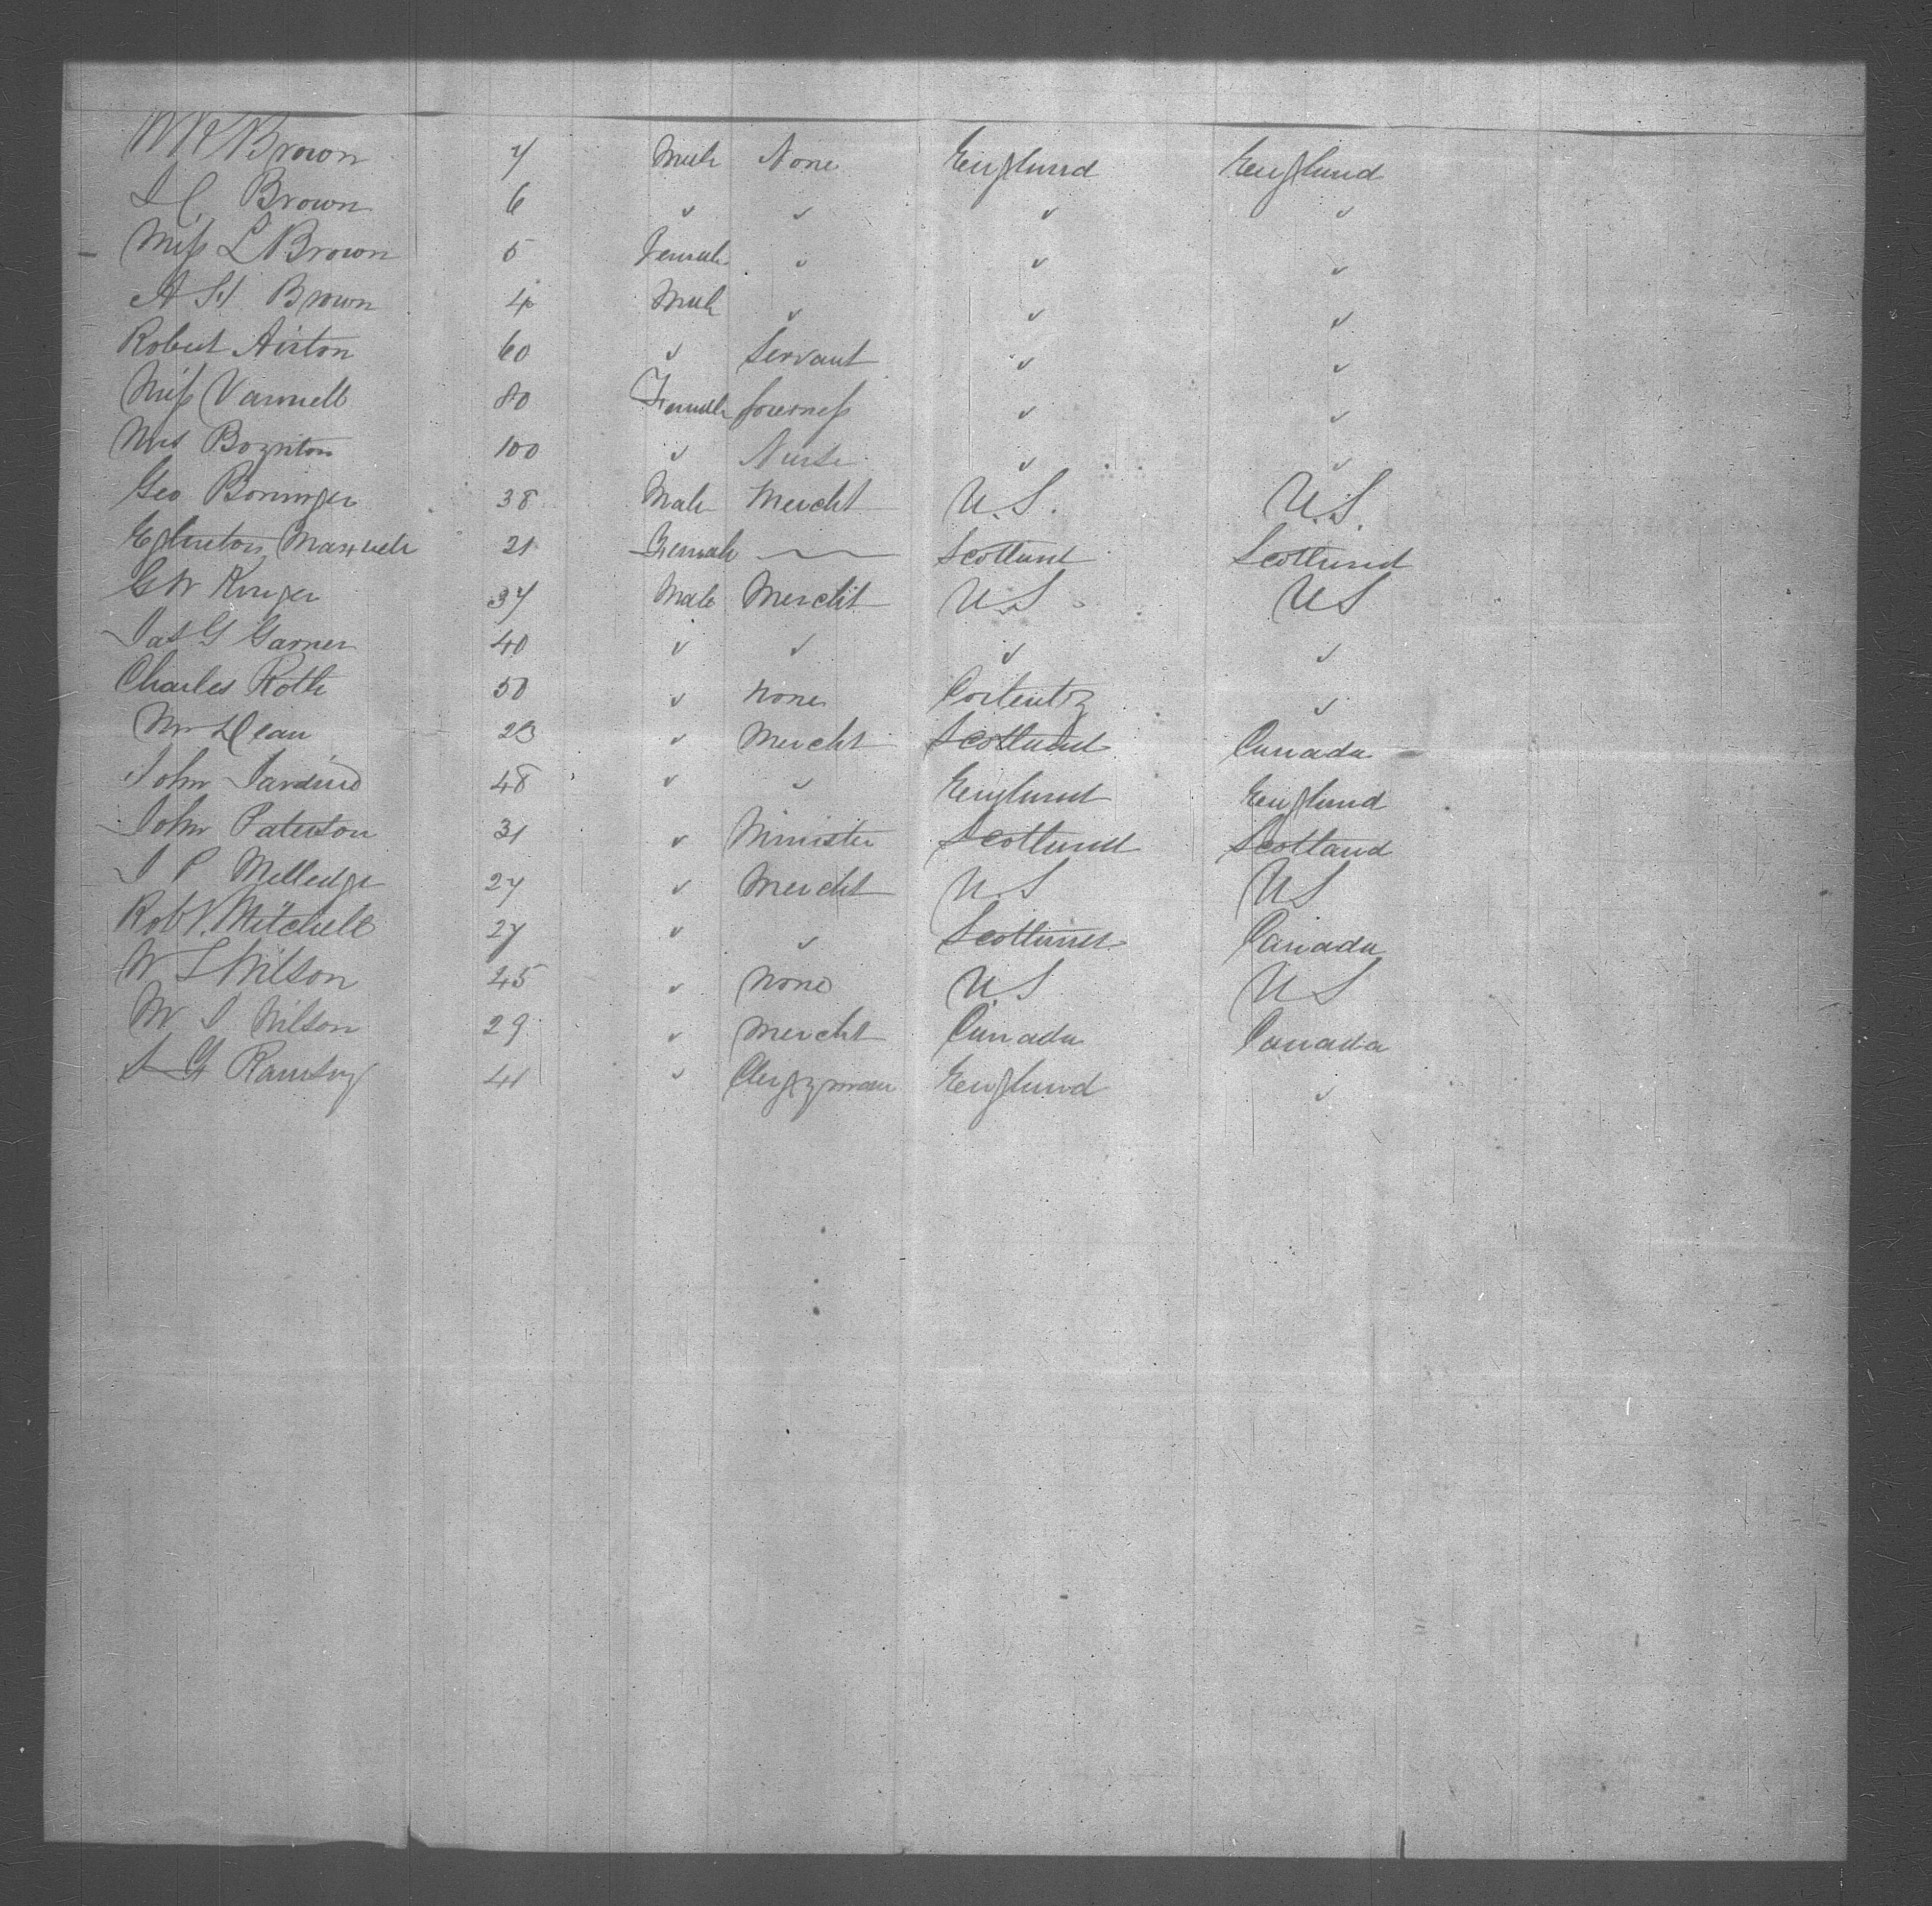 W R Brown 7 Male None England England
J C Brown 6 " " " "
Miss L Brown 5 Female " " "
A H Brown 4 Male " " "
Robert Airton 60 " Servant " "
Miss Varnell 80 Female Governess " "
Mrs Boynton 100 " Nurse " "
Geo 38 Male Mercht U.S. U.S.
Eglinton Maxwell 21 Female — Scotland Scotland
G W 37 Male Mercht U.S U S
Jas G Garner 40 " " " "
Charles Roth 50 " None "
Mr Dean 23 " Mercht Scotland Canada
John Jardine 48 " " England England
John Paterson 31 " Minister Scotland Scotland
J P Milledge 27 " Mercht U S U S
Robt. Mitchell 27 " " Scotland Canada
W S Wilson 45 " None U.S U S
W J Wilson 29 " Mercht Canada Canada
S G Ramsay 41 " Clergyman England "